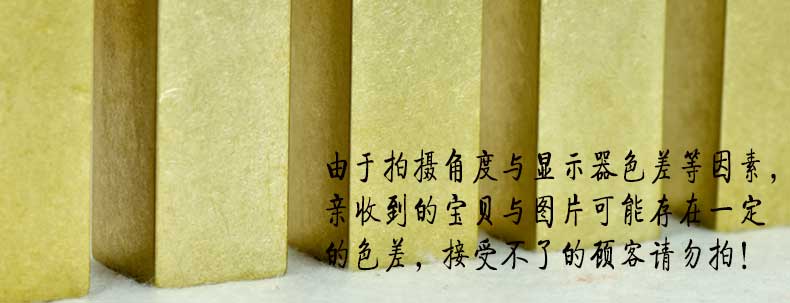 由于拍摄角度与显示器色差等因素，
亲收到的宝贝与图片可能存在一定
的色差，接受不了的顾客请勿拍！